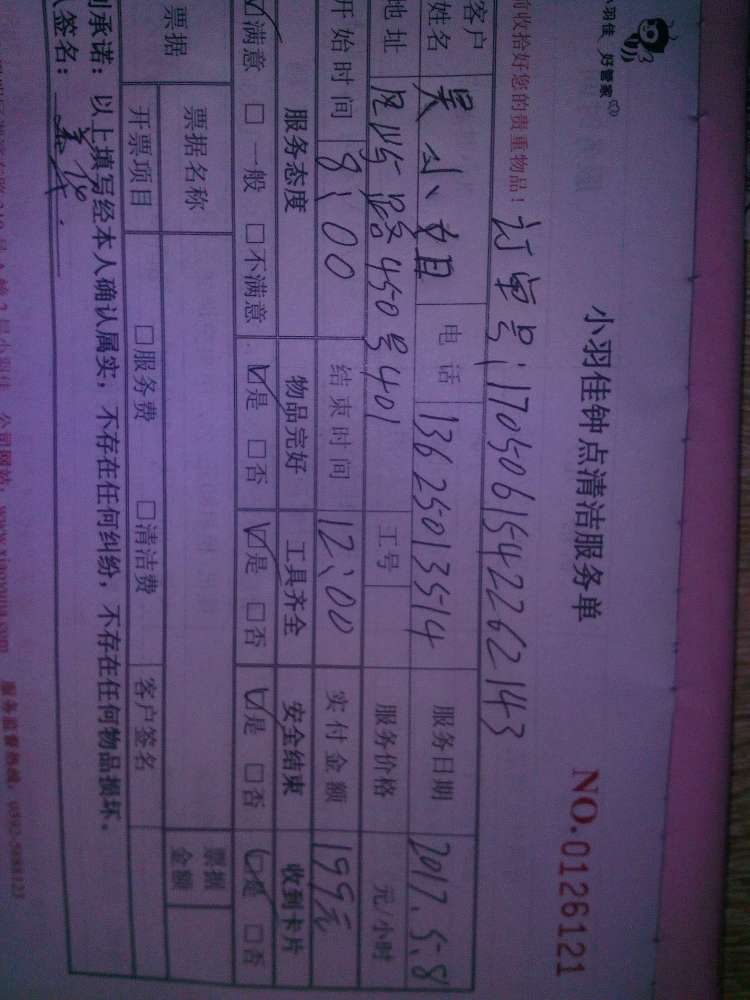 小羽佳 好管家
小羽佳钟点清洁服务单 NO.0126121
前收拾好您的贵重物品! 订单号:1705061542262143
客户姓名 吴小姐 电话 13625013514 服务日期 2017.5.8
地址 450号401 工号 服务价格 元/小时
开始时间 8:00 结束时间 12:00 实付金额 199元
服务态度 物品完好 工具齐全 安全结束 收到卡片
☑满意 □一般 □不满意 ☑是 □否 ☑是 □否 ☑是 □否 ☑是 □否
票据 票据名称 票据金额
开票项目 □服务费 □清洁费 客户签名
承诺:以上填写经本人确认属实,不存在任何纠纷,不存在任何物品损坏。
签名:
公司网站:www.xiaoyujia.com 服务监督热线:0592-5888123